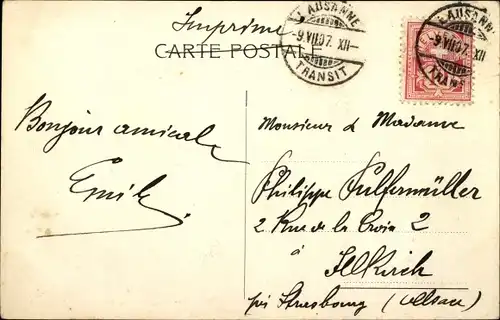 Imprimé
CARTE POSTALE
LAUSANNE
-9.VII.07. XII-
TRANSIT
LAUSANNE
-9.VII.07. XII
TRANS
Bonjour amicale
Emile
Monsieur & Madame
Philippe Pulfermüller
2 Rue de la Croix 2
à
Illkirch
près Strasbourg (Alsace)